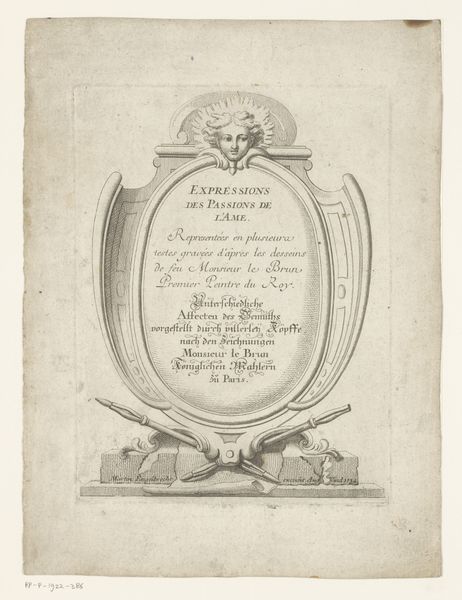 EXPRESSIONS
DES PASSIONS DE
L'AME.
Representées en plusieurs
testes gravées d'après les desseins
de feu Monsieur le Brun
Premier Peintre du Roy.
Unterschiedliche
Affecten des Gemüths
vorgestellt durch villerley Köpffe
nach den Zeichnungen
Monsieur le Brun
Königlichen Mahlern
zu Paris.
Martin Engelbrecht
excudit Aug. Vind. 1732
RP-P-1922-286